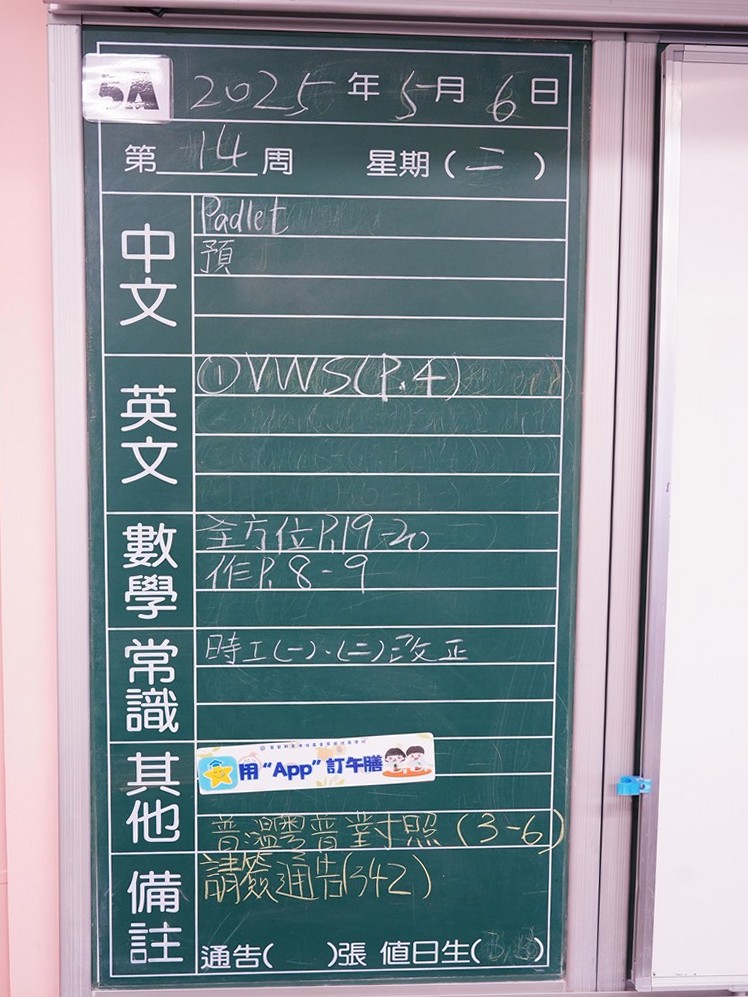 5A 2025年5月6日
第14周 星期(二)
中文
Padlet
預
英文
①VWS(P.4)
數學
全方位P.19-20
作P.8-9
常識
時工(一)、(二)改正
其他
用“App”訂午膳
普溫粵普對照(3-6)
備註
請簽通告(342)
通告( )張 值日生( )